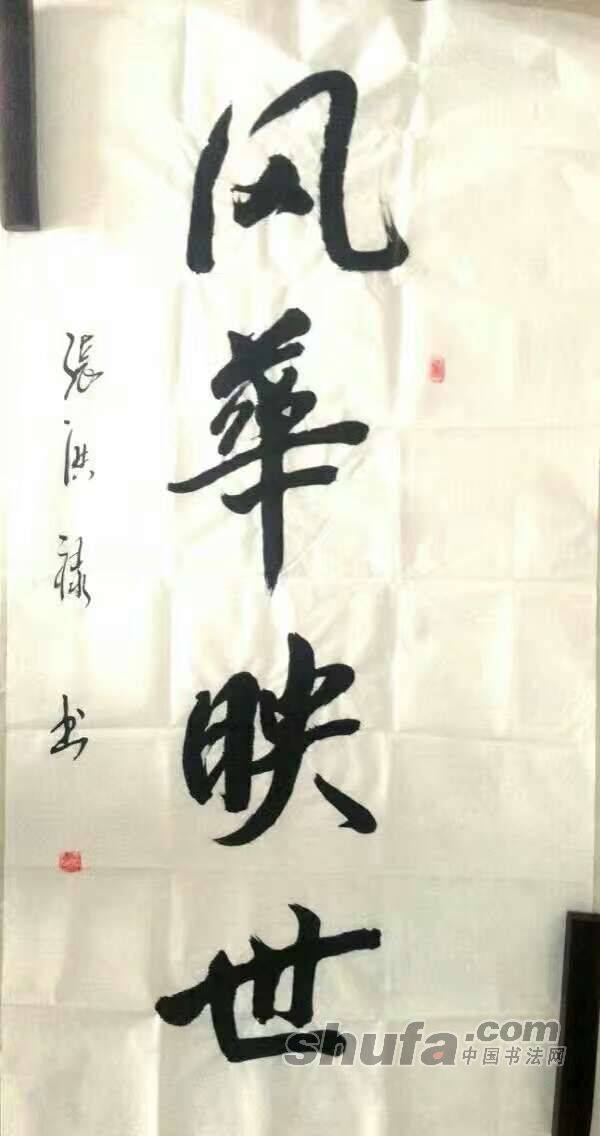 风華映世
張洪禄书
shufa.com
中国书法网